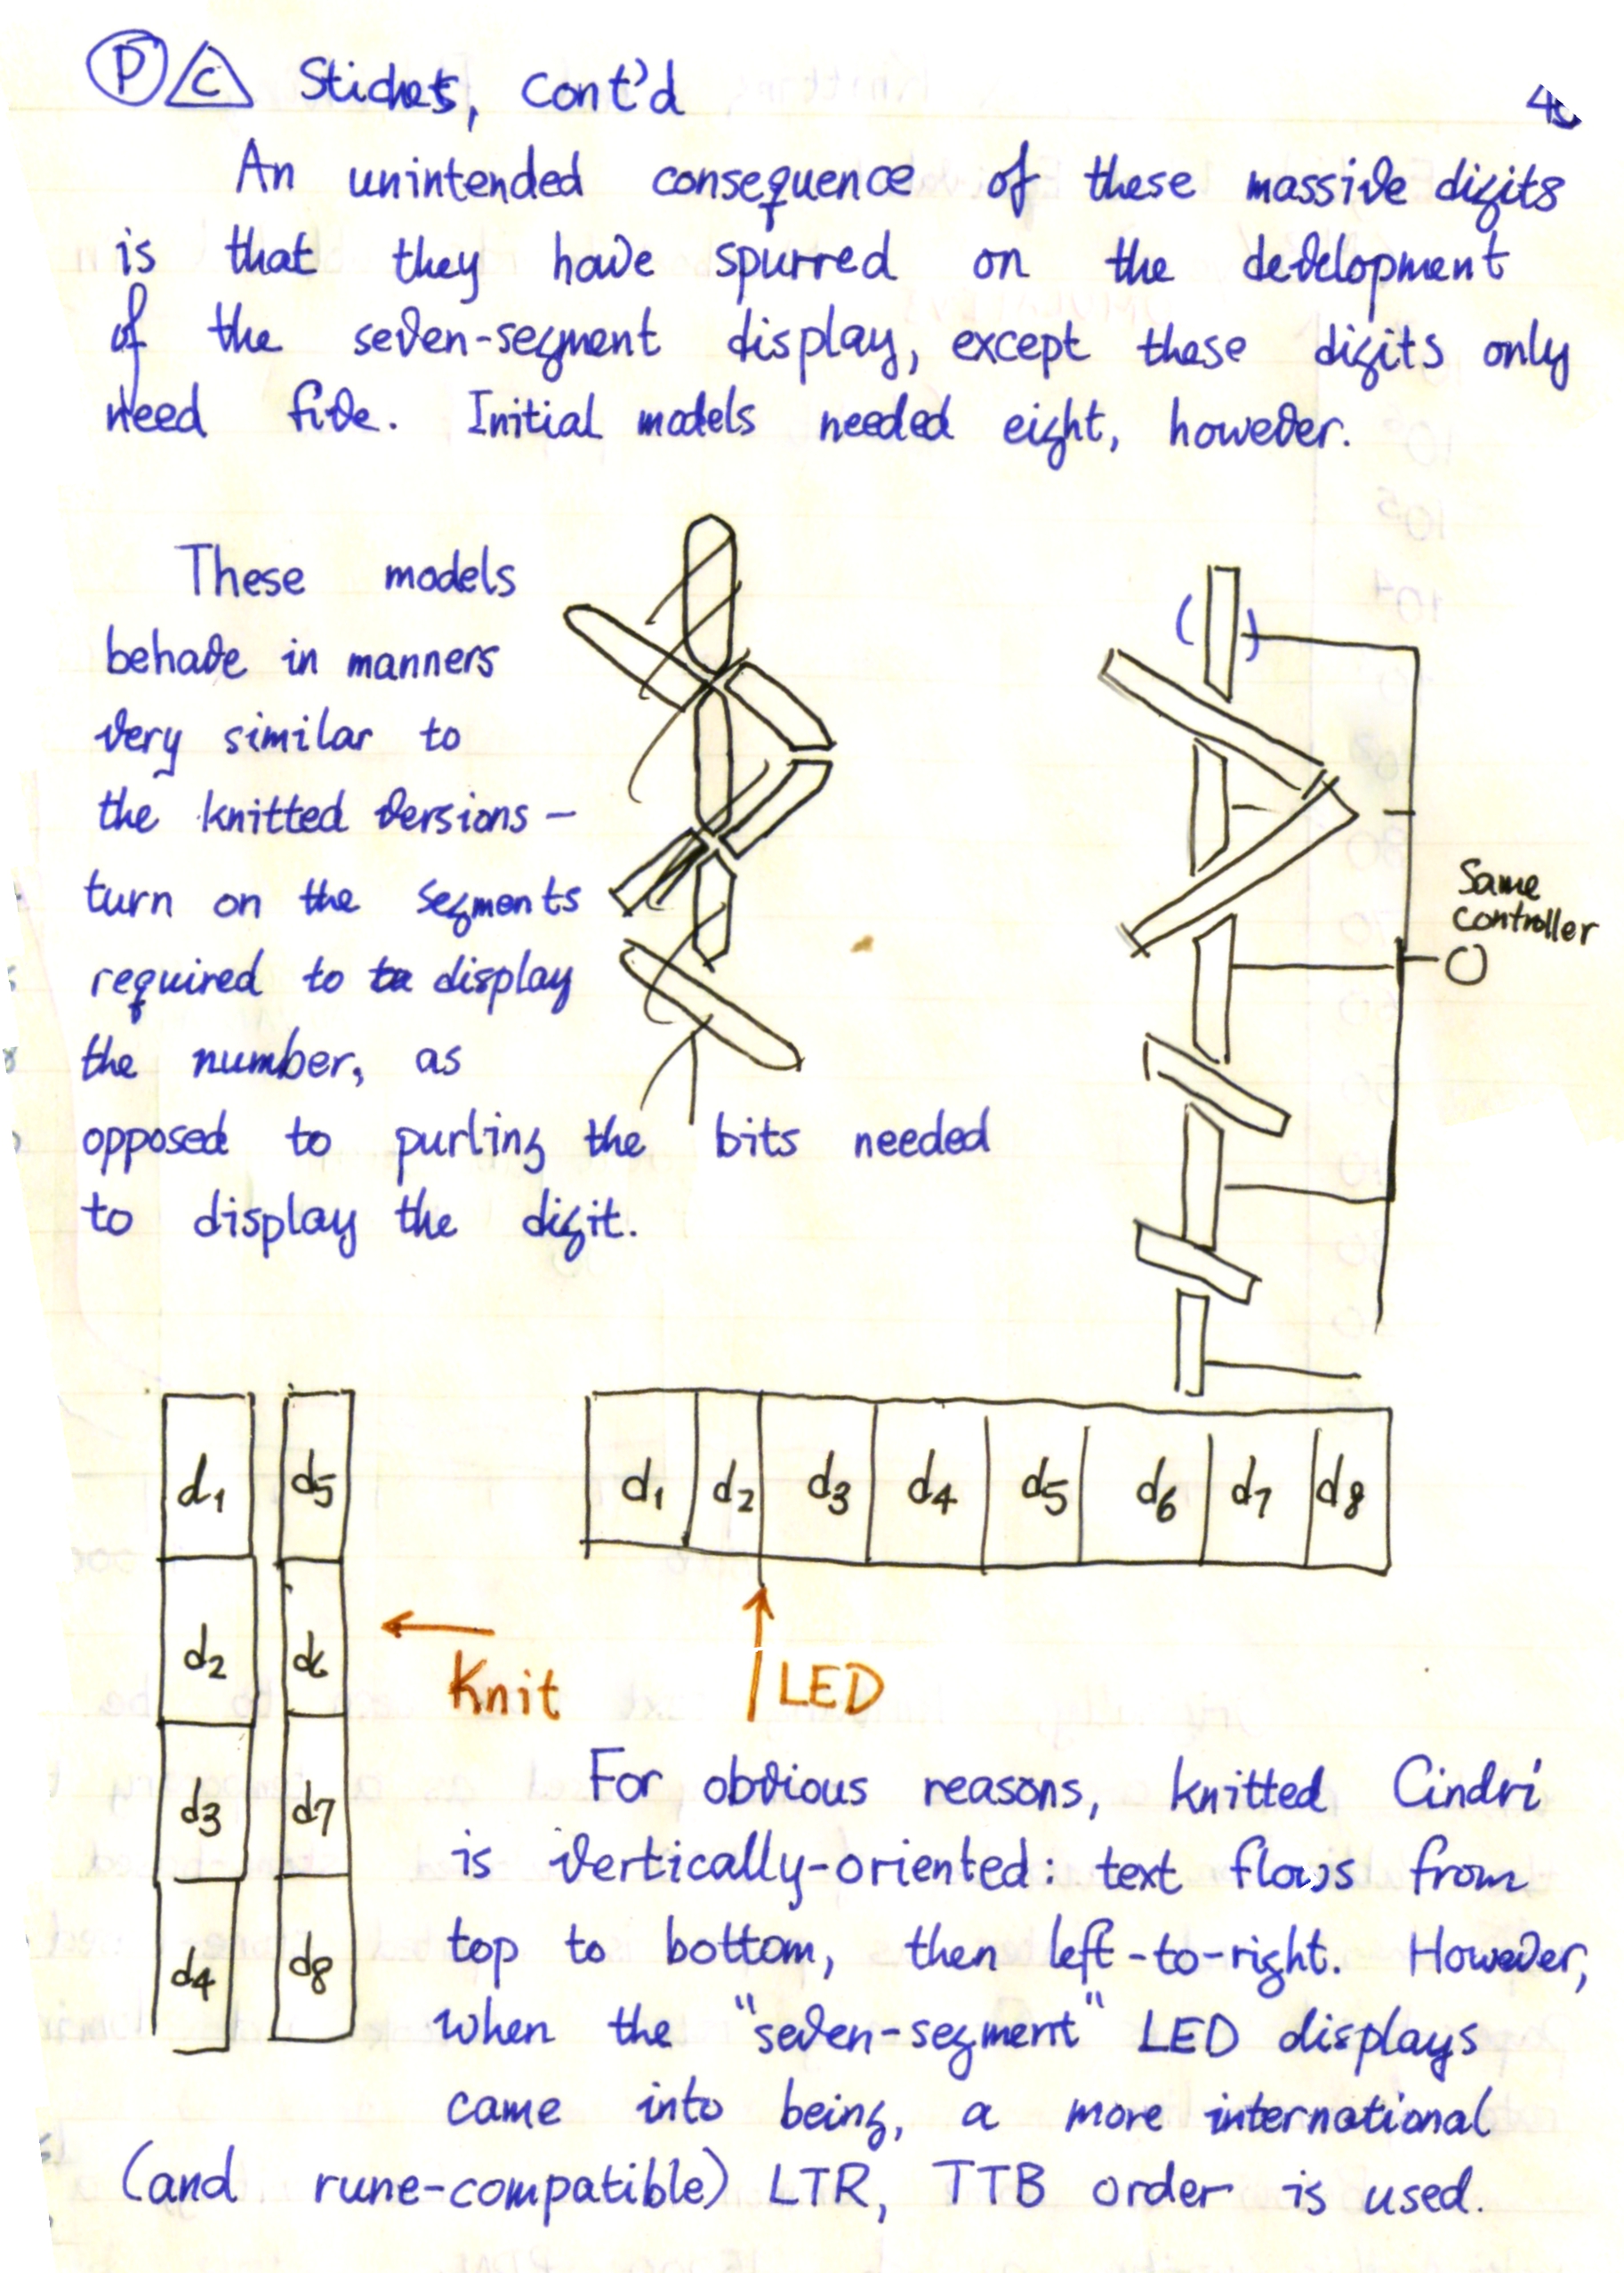 P C Stiches, cont'd
An unintended consequence of these massive digits
is that they have spurred on the development
of the seven-segment display, except these digits only
need five. Initial models needed eight, however.
These models
behave in manners
very similar to
the knitted versions –
turn on the segments
required to display
the number, as
opposed to purling the bits needed
to display the digit.
Same
controller
d1 d5
d2 d6
d3 d7
d4 d8
Knit
d1 d2 d3 d4 d5 d6 d7 d8
LED
For obvious reasons, knitted Cindri
is vertically-oriented: text flows from
top to bottom, then left-to-right. However,
when the "seven-segment" LED displays
came into being, a more international
(and rune-compatible) LTR, TTB order is used.